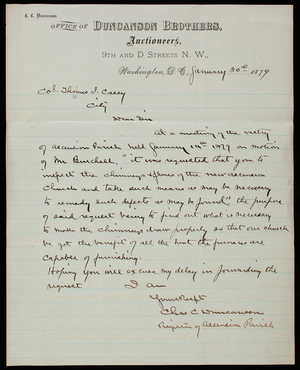 C. C. Duncanson.
OFFICE OF DUNCANSON BROTHERS,
Auctioneers,
9TH AND D STREETS N. W.,
Washington, D. C., January 30th 1879
Col Thomas L Casey
City
Dear Sir
At a meeting of the vestry
of Ascension Parish held January 14th 1879 on motion
of Mr Burchell, "it was requested that you to
inspect the chimneys & flues of the new Ascension
Church and take such means as may be necessary
to remedy such defects as may be found", the purpose
of said request being to find out what is necessary
to make the chimneys draw properly so that our church
can get the benefit of all the heat the furnaces are
capable of furnishing.
Hoping you will excuse my delay in forwarding the
request I am
Yours Respt
Chas C. Duncanson
Register of Ascension Parish